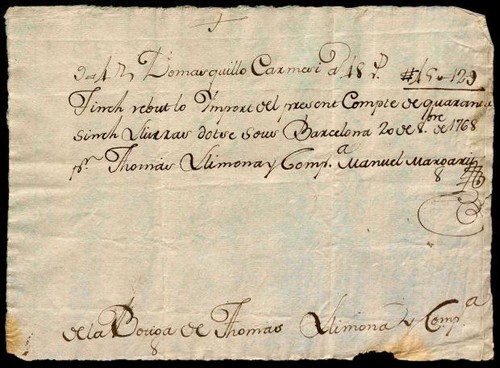 Domasquillo Carmesi a 18
Tinch rebut lo Import del present Compte de quaranta
sinch Lliuras dotse sous Barcelona 20 de 8.bre de 1768
p.r Thomas Llimona y Comp.a Manuel Margarit
de la Botiga de Thomas Llimona y Comp.a